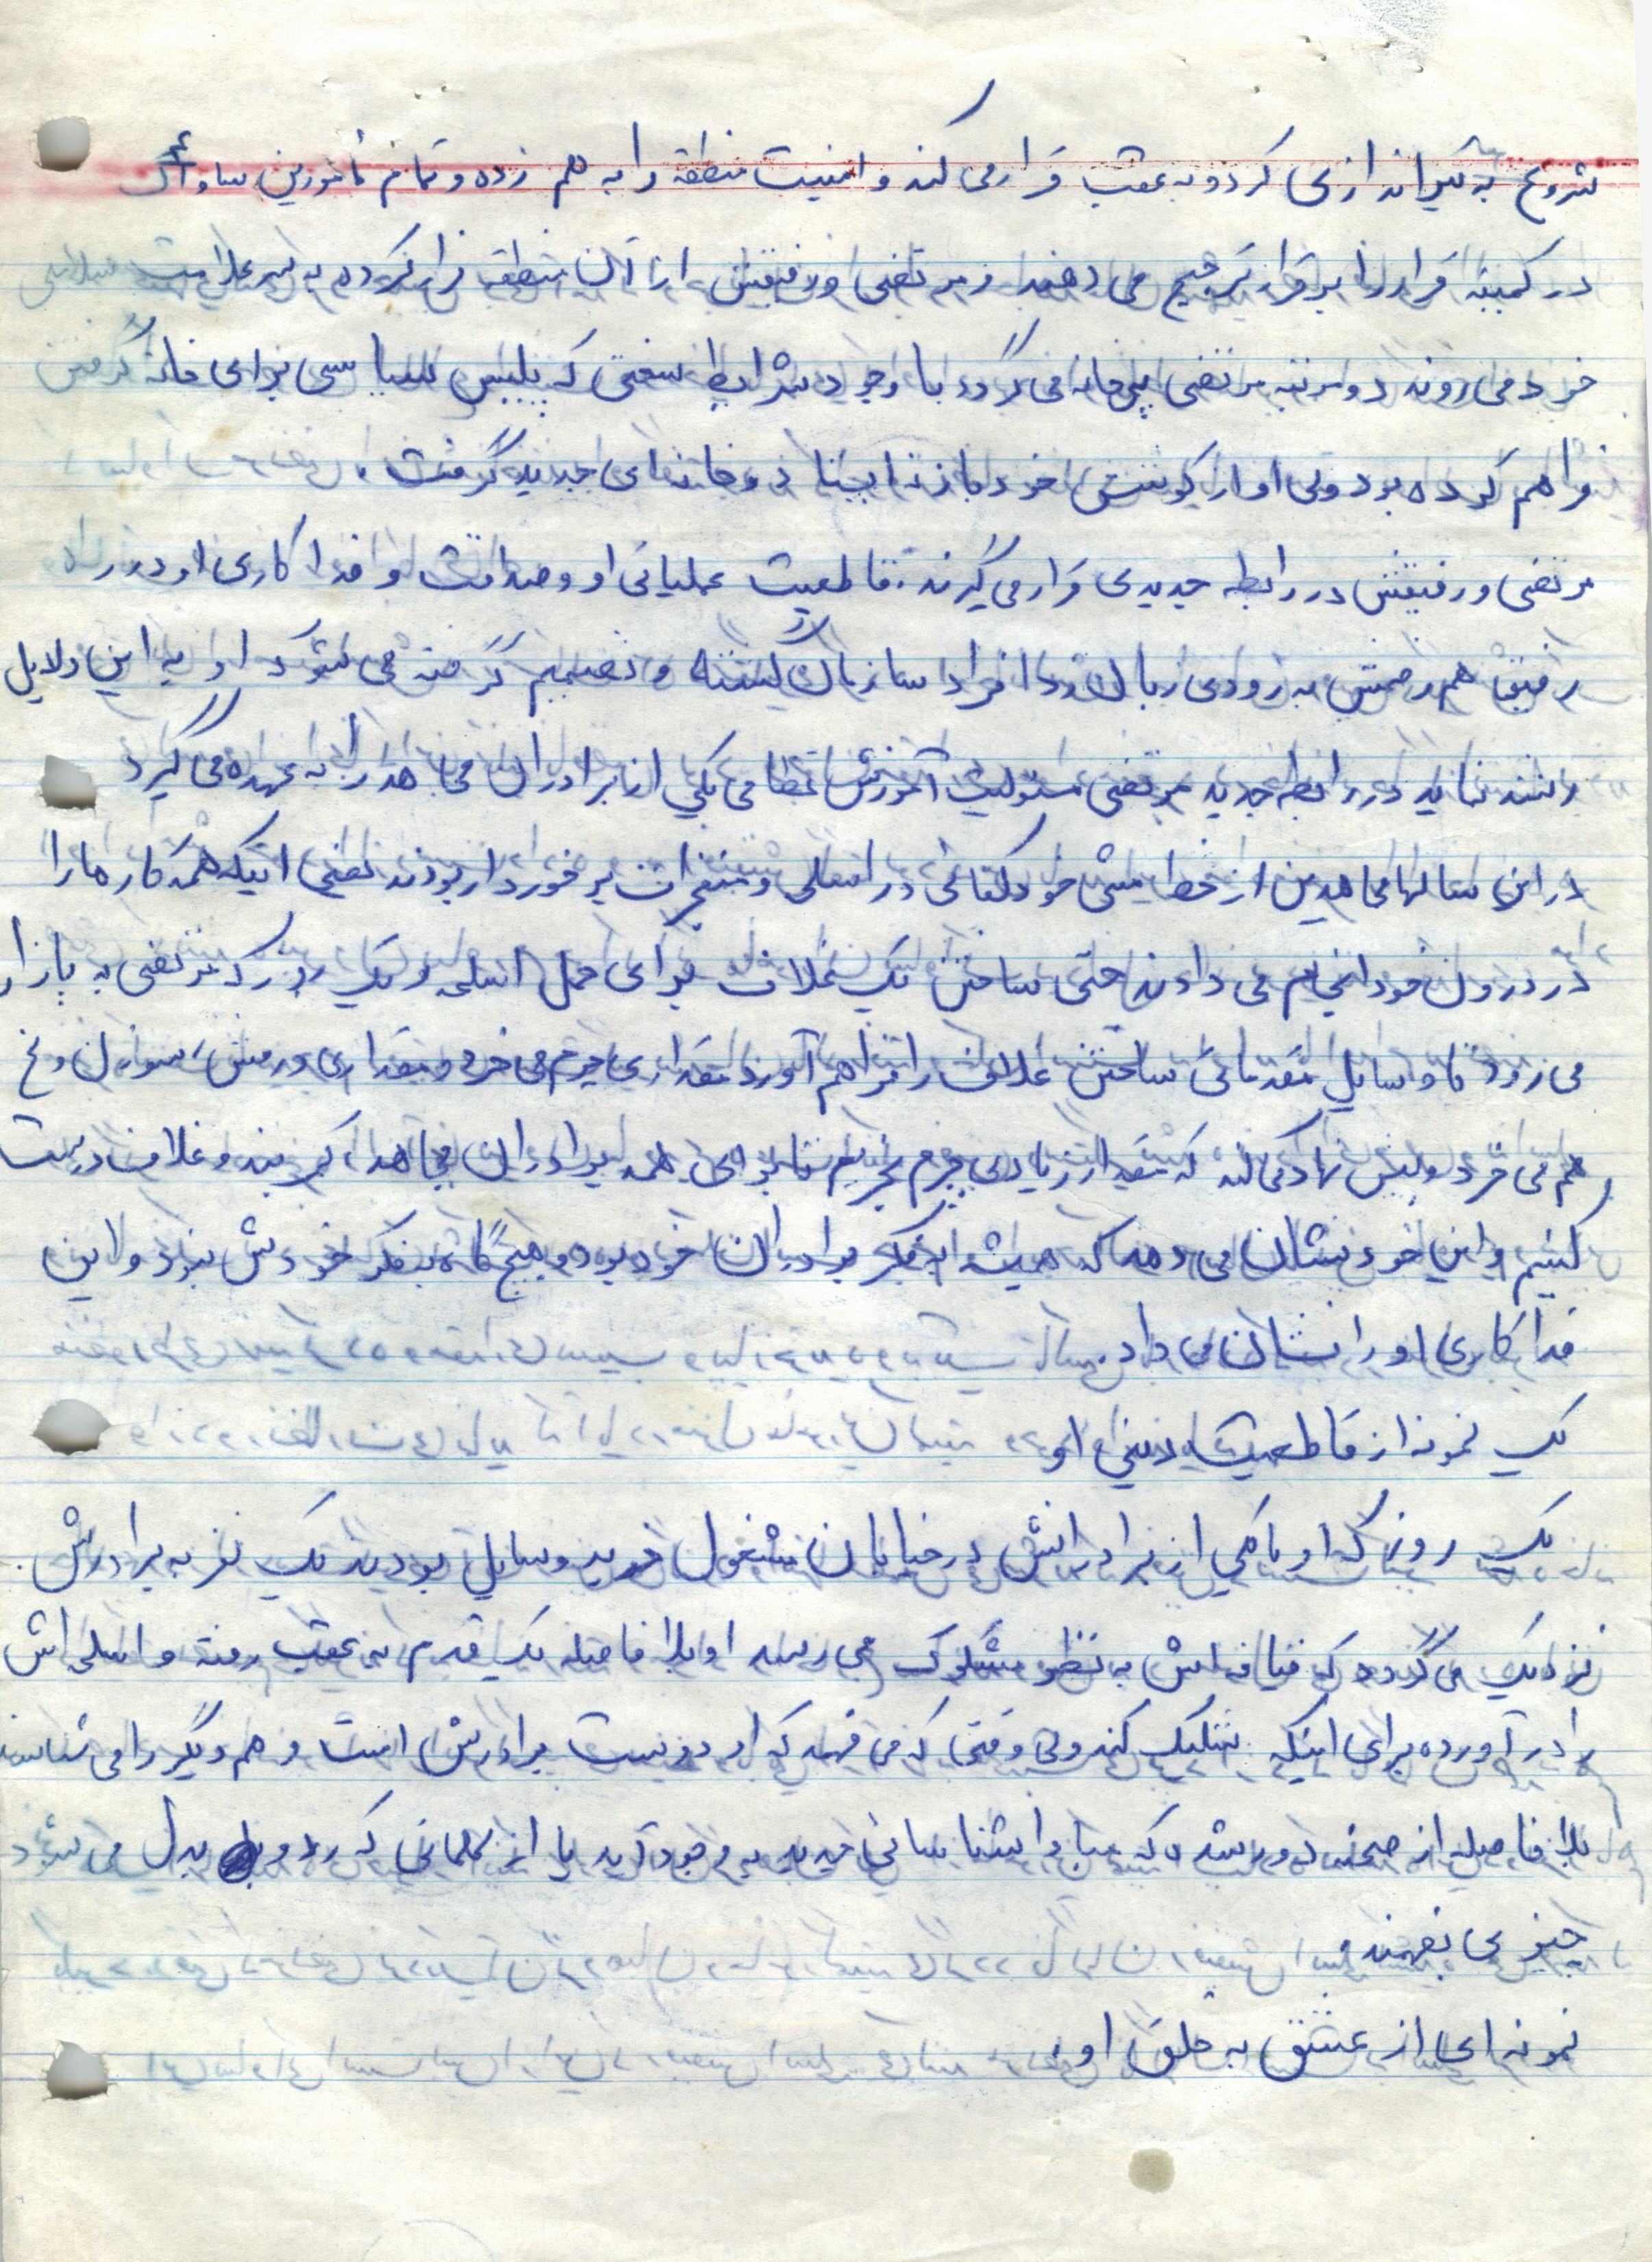 شروع به تیراندازی کرده و به عقب فرار می کند و امنیت منطقه را به هم زده و تمام مأمورین ساواک
در کمیته فرار را بر قرار ترجیح می دهند و مرتضی و رفیقش از آن منطقه فرار کرده به سر علامت سلامتی
خود می روند دو مرتبه مرتضی بی خانه می گردد با وجود شرایط سختی که پلیس سیاسی برای خانه گرفتن
فراهم کرده بود ولی او از کوشش خود باز نه ایستاد و خانه ای جدید گرفت.
مرتضی و رفیقش در رابطه جدیدی قرار می گیرند. قاطعیت عملیاتی او و صداقت و فداکاری او در راه
رفیق هم رزمش به زودی زبان زد افراد سازمان گشته و تصمیم گرفته می شود که او به این دلایل
رشد نماید در رابطه جدید مرتضی مسئولیت آموزش نظامی یکی از برادران مجاهد را به عهده می گیرد
در این سالها مجاهدین از خط مشی خودکفائی در اسلحه و منفجرات برخوردار بودند یعنی اینکه همه کارها را
در درون خود انجام می دادند حتی ساختن یک غلاف برای حمل اسلحه و یک روز که مرتضی به بازار
می رود تا وسایل مقدماتی ساختن غلاف را فراهم آورد مقداری چرم می خرد و مقداری درفش، سوزن و نخ
هم می خرد و پیش نهاد می کند که مقدار زیادی چرم بخریم تا برای همه برادران مجاهد، کمربند و غلاف درست
کنیم و این خود نشان می دهد که همیشه به فکر برادران خود بوده و هیچ گاه به فکر خودش نبود و این
فداکاری او را نشان می داد.
یک نمونه از قاطعیت او
یک روز که او با یکی از برادرانش در خیابان مشغول خرید وسایل بودید یک نفر به برادرش
نزدیک می گردد که قیافه اش به نظر مشکوک می رسد او بلا فاصله یک قدم به عقب رفته و اسلحه اش
را در آورده برای اینکه شلیک کند ولی وقتی که می فهمد که او دوست برادرش است و هم دیگر را می شناسند
بلا فاصله از صحنه دور شده که مبادا شناسائی جدید به وجود آید یا از کلماتی که رد و بدل می شود
چیزی بفهمد.
نمونه ای از عشق به خلق او.